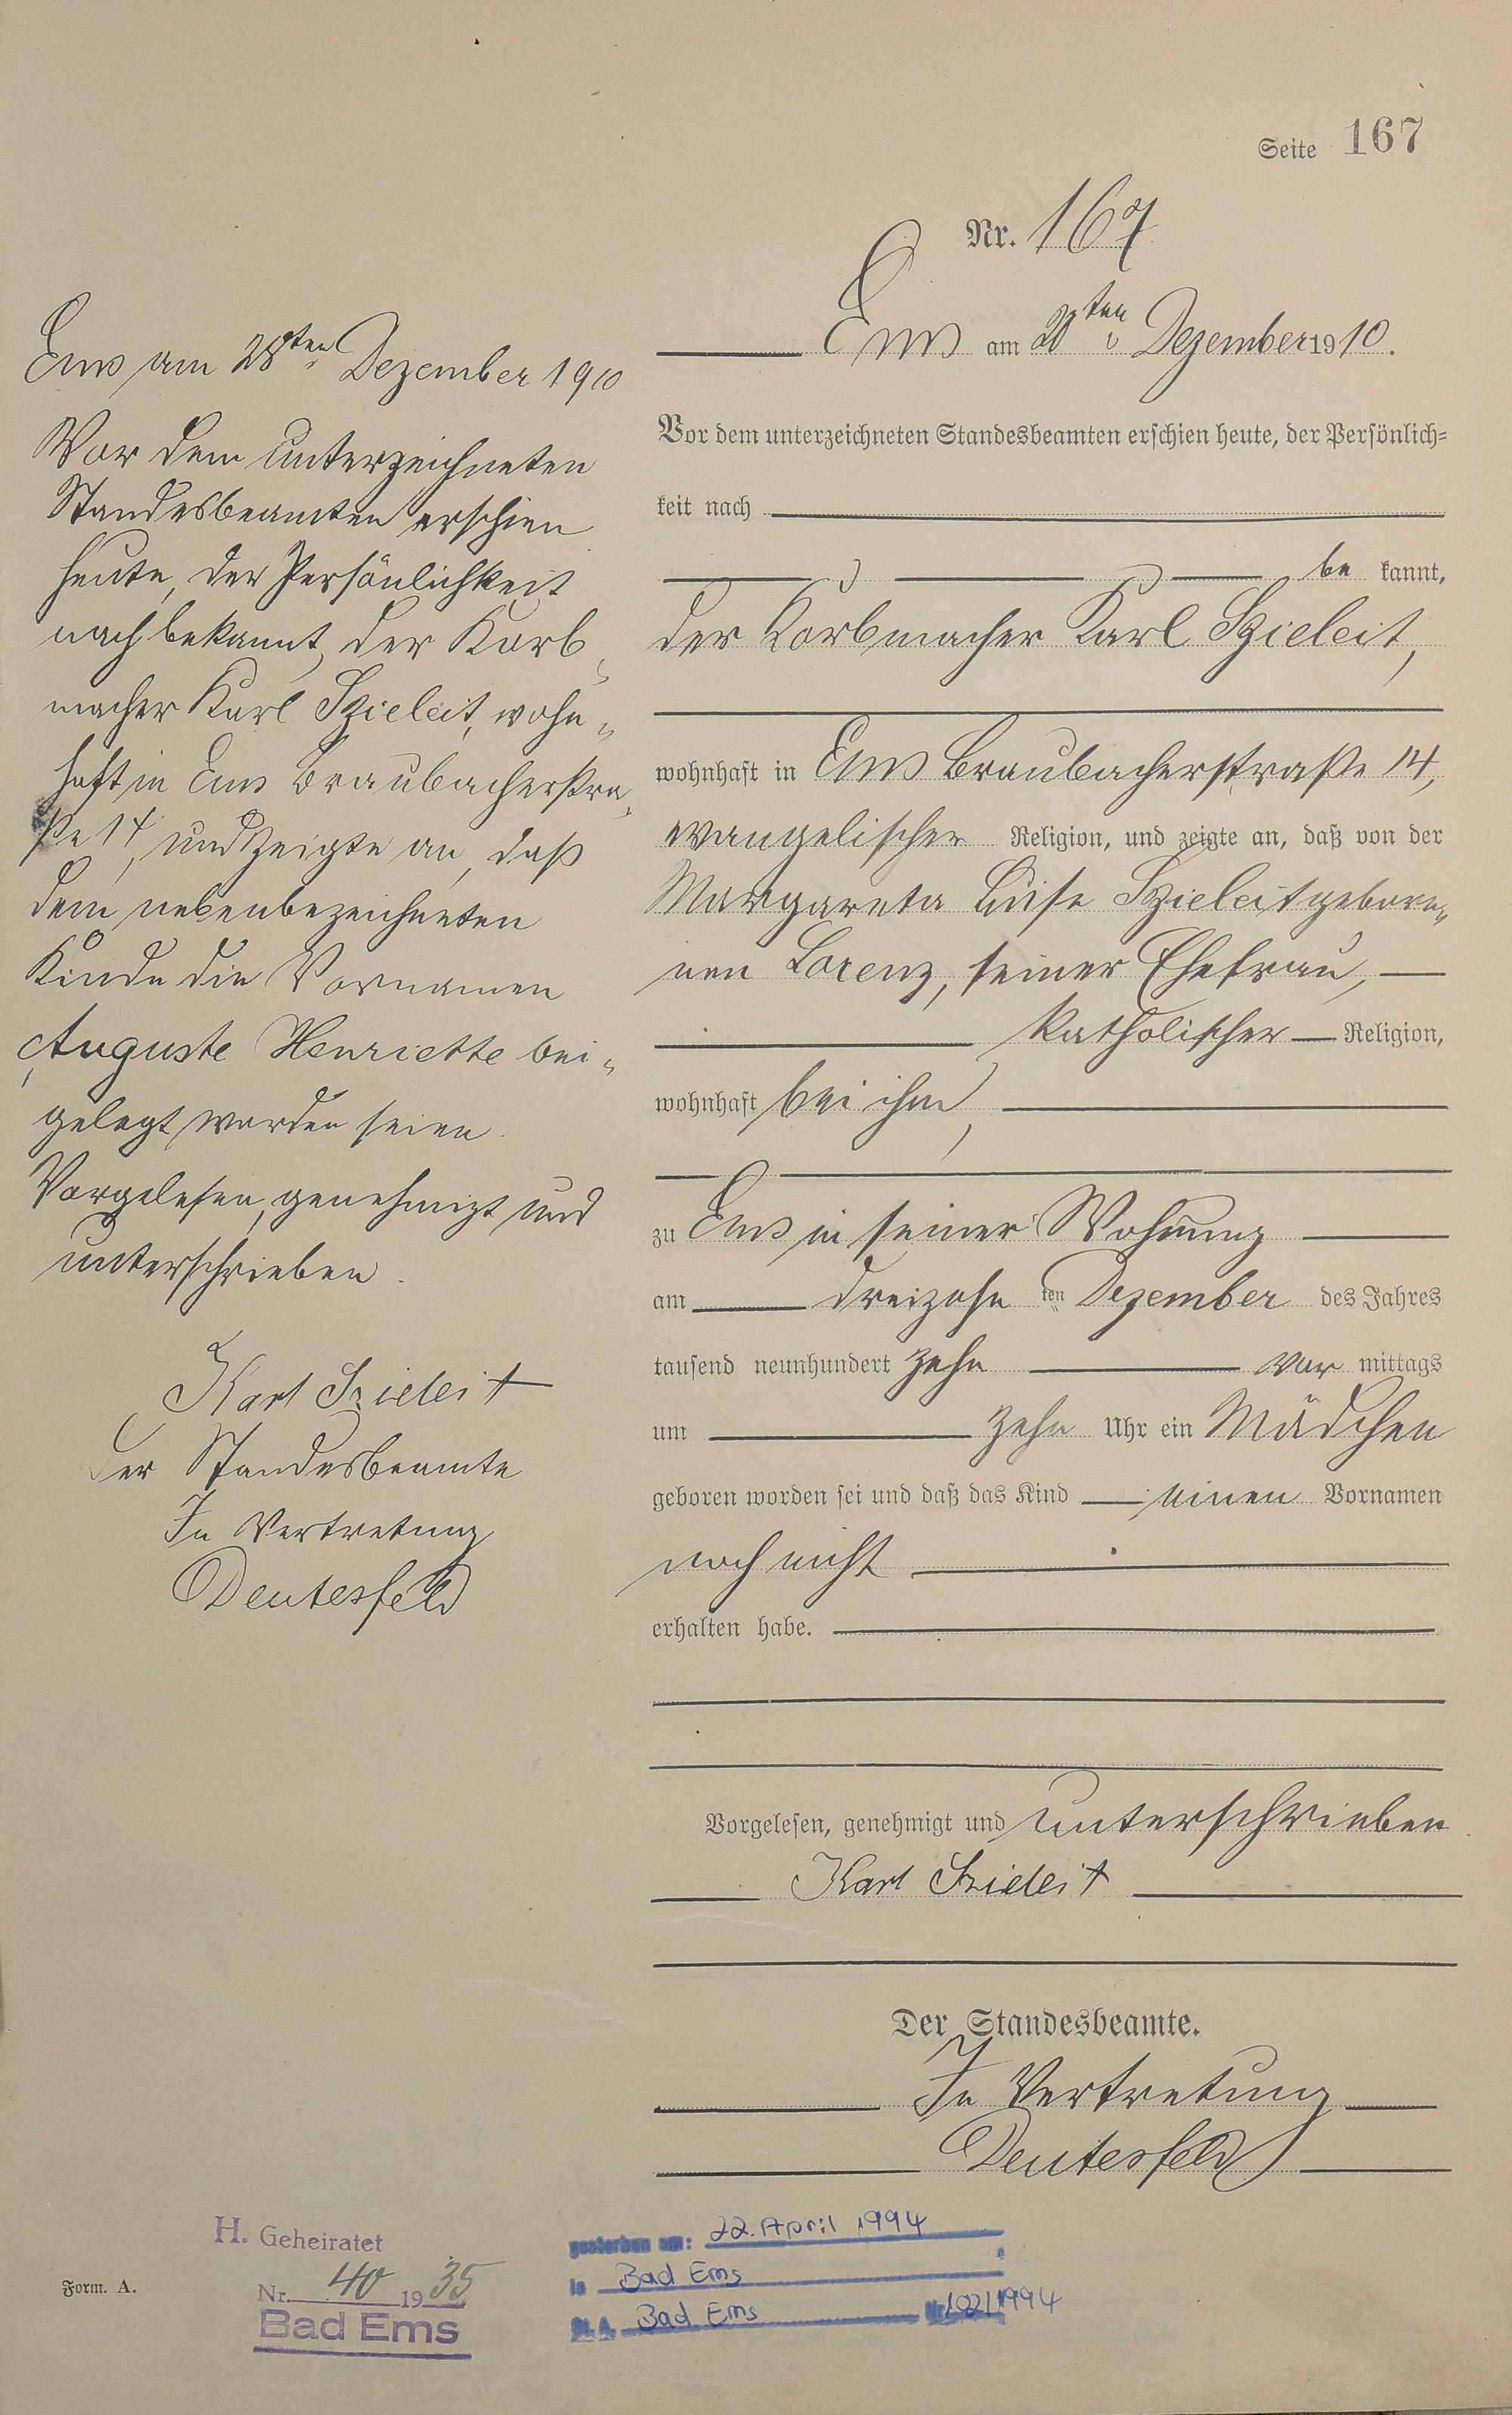 Seite 167
Nr. 167
Ems am 20ten Dezember 1910.
Vor dem unterzeichneten Standesbeamten erschien heute, der Persönlich=
keit nach
be kannt,
der Korbmacher Karl Szieleit,
wohnhaft in Ems Braubacherstraße 14,
evangelischer Religion, und zeigte an, daß von der
Margareta Luise Szieleit gebore„
nen Lorenz, seiner Ehefrau,
katholischer Religion,
wohnhaft bei ihm,
zu Ems in seiner Wohnung
am dreizehn ten Dezember des Jahres
tausend neunhundert zehn vor mittags
um zehn Uhr ein Mädchen
geboren worden sei und daß das Kind einen Vornamen
noch nicht
erhalten habe.
Vorgelesen, genehmigt und unterschrieben
Karl Szieleit
Der Standesbeamte.
In Vertretung
Deutesfeld
Ems am 28ten Dezember 1910
Vor dem unterzeichneten
Standesbeamten erschien
heute, der Persönlichkeit
nach bekannt, der Korb„
macher Karl Szieleit, wohn„
haft in Ems Braubacherstra„
ße 14, und zeigte an, daß
dem nebenbezeichneten
Kinde die Vornamen
Auguste Henriette bei„
gelegt worden seien.
Vorgelesen, genehmigt und
unterschrieben.
Karl Szieleit
Der Standesbeamte
In Vertretung
Deutesfeld
H. Geheiratet
Nr. 40 1935
Bad Ems
gestorben am: 22. April 1994
in Bad Ems
St. A. Bad Ems Nr. 102/1994
Form. A.